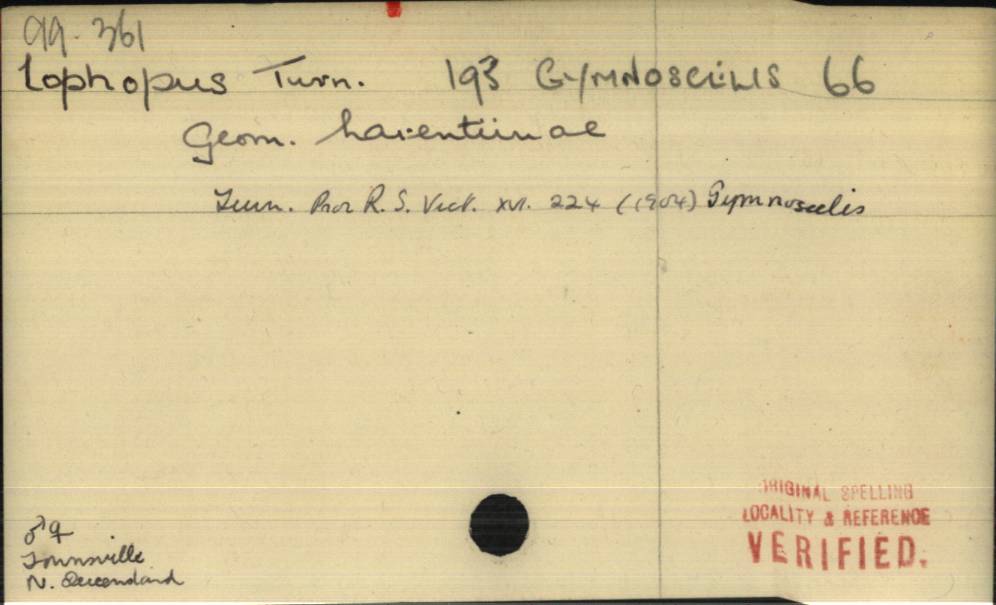 99.361
Lophopus Turn. 193 GYMNOSCELIS 66
Geom. Larentiinae
Turn. Proc R. S. Vict. XVI. 224 (1904) Gymnoscelis
♂ ♀
Townsville
N. Queensland
ORIGINAL SPELLING
LOCALITY & REFERENCE
VERIFIED.